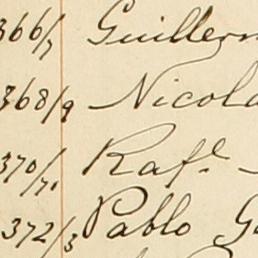 366/7 Guillerm
368/9 Nicola
370/71 Raf.l
372/3 Pablo G